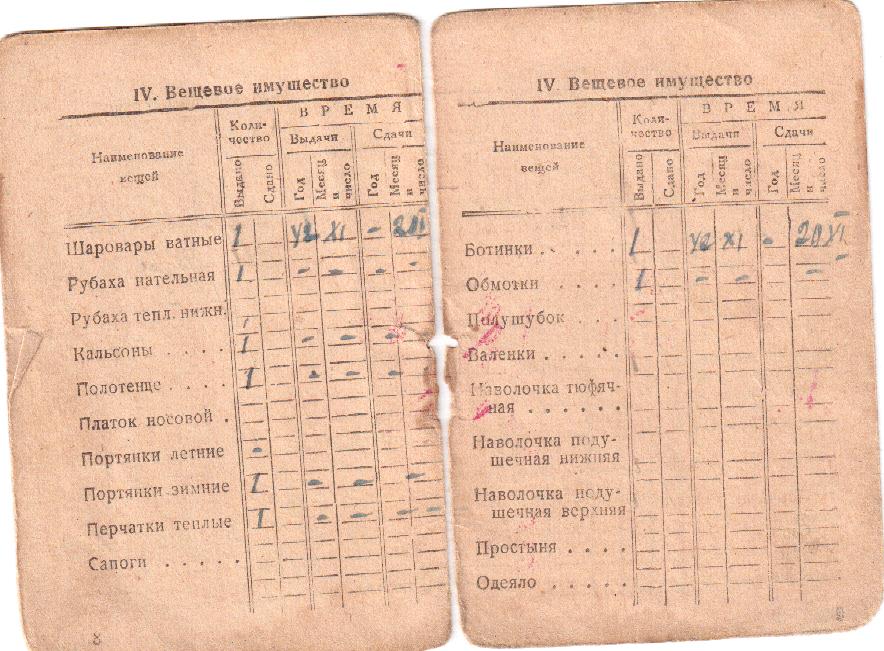 IV. Вещевое имущество
Наименование вещей
Количество
ВРЕМЯ
Выдачи
Сдачи
Выдано
Сдано
Год
Месяц и число
Год
Месяц и число
Шаровары ватные 1 42 XI -
Рубаха нательная 1 - - -
Рубаха тепл. нижн.
Кальсоны . . . . 1 - - -
Полотенце . . . . 1 - - -
Платок носовой .
Портянки летние -
Портянки зимние 1 - - -
Перчатки теплые 1 - - - -
Сапоги . . . . .
8
IV. Вещевое имущество
Наименование вещей
Коли-
чество
ВРЕМЯ
Выдачи
Сдачи
Выдано
Сдано
Год
Месяц и число
Год
Месяц и число
Ботинки . . . . . 1 42 XI - 20 XI
Обмотки . . . . 1 - - -
Полушубок . . . .
Валенки . . . . .
Наволочка тюфяч-
ная . . . . . .
Наволочка поду-
шечная нижняя
Наволочка поду-
шечная верхняя
Простыня . . . .
Одеяло . . . . .
9